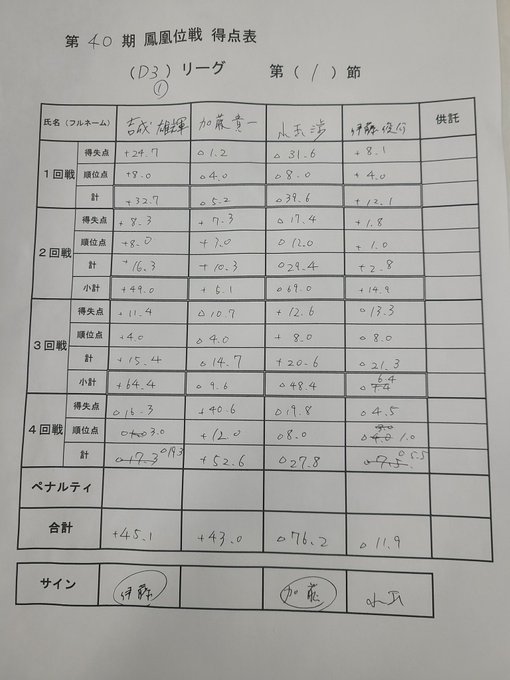 第 40 期 鳳凰位戦 得点表
(D3) リーグ 第 ( 1 ) 節
①
氏名 (フルネーム) 吉成 雄輝 加藤 貴一 伊藤 俊介 供託
1回戦 得失点 +24.7 △1.2 △31.6 +8.1
順位点 +8.0 △4.0 △8.0 +4.0
計 +32.7 △5.2 △39.6 +12.1
2回戦 得失点 +8.3 +7.3 △17.4 +1.8
順位点 +8.0 +3.0 △12.0 +1.0
計 +16.3 +10.3 △29.4 +2.8
小計 +49.0 +5.1 △69.0 +14.9
3回戦 得失点 +11.4 △10.7 +12.6 △13.3
順位点 +4.0 △4.0 +8.0 △8.0
計 +15.4 △14.7 +20.6 △21.3
小計 +64.4 △9.6 △48.4 6.4
4回戦 得失点 △16.3 +40.6 △19.8 △4.5
順位点 3.0 +12.0 △8.0 1.0
計 △17.3 △19.3 +52.6 △27.8 △7.5 △5.5
ペナルティ
合計 +45.1 +43.0 △76.2 △11.9
サイン 伊藤 加藤